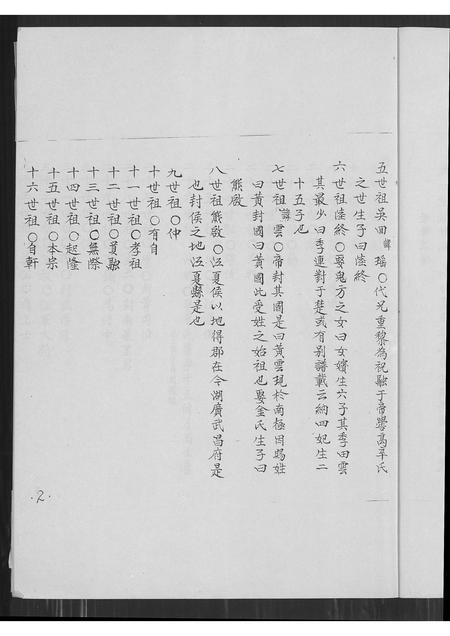 五世祖吳回諱瑤○代兄重黎為祝融于帝嚳高辛氏
之世生子曰陸終
六世祖陸終○娶鬼方之女曰女嬪生六子其季曰雲
其最少曰季連對于楚或有别譜載云納四妃生二
十五子也
七世祖諱雲○帝封其國是曰黃雲現於南極因賜姓
曰黃封國曰黃國此受姓之始祖也娶金氏生子曰
熊啟
八世祖熊啟○江夏侯以地得郡在今湖廣武昌府是
也封侯之地江夏縣是也
九世祖○仲
十世祖○有自
十一世祖○孝祖
十二世祖○貢融
十三世祖○無際
十四世祖○起隆
十五世祖○本宗
十六世祖○自軒
.2.